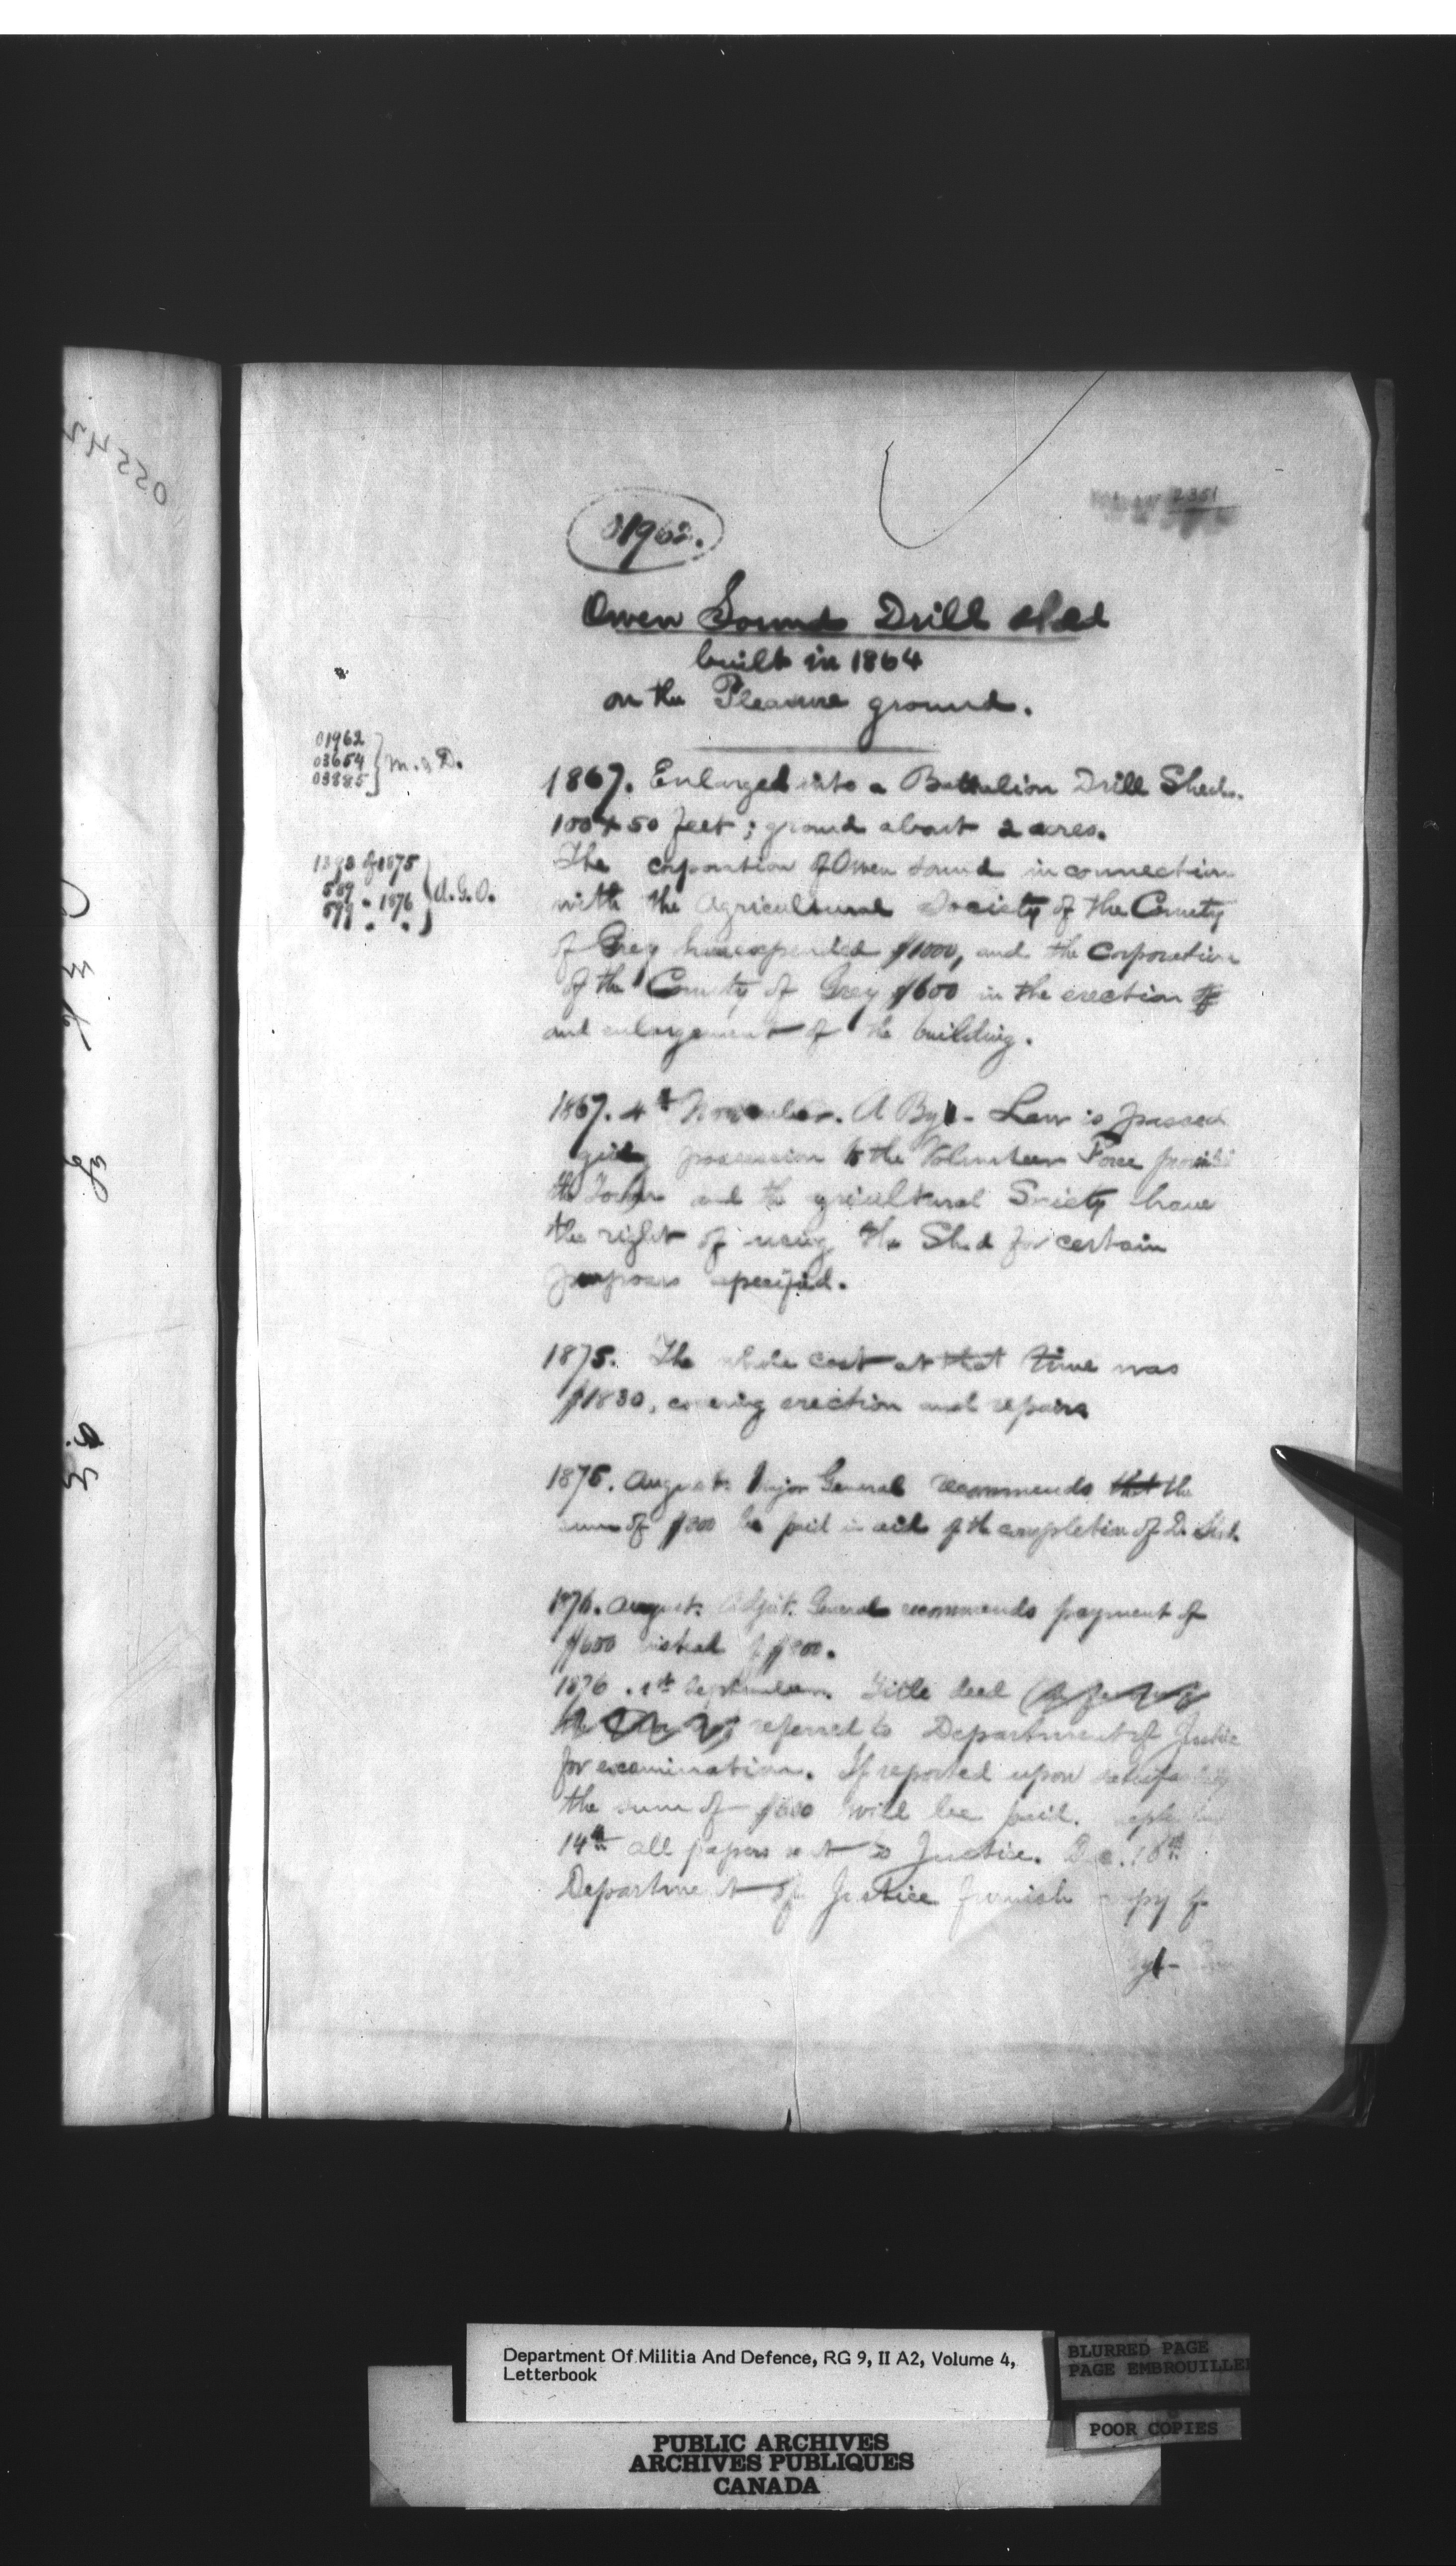 2351
01962.
Owen Sound Drill shed
built in 1864
on the Pleasure ground.
01962
03654
03885
M. & D.
1867. Enlarged into a Battalion Drill Shed.
100 x 50 feet; ground about 2 acres.
of 1875
1876
A.G.O.
The corporation of Owen Sound in connection
with the Agricultural Society of the County
of Grey have expended $1000, and the Corporation
of the County of Grey $600 in the erection of
and enlargement of the building.
1867. 4th November. A Bye-Law is passed
giving possession to the Volunteer Force
the and the gricultural Society have
the right of using the Shed for certain
purposes specified.
1875. The whole cost at that time was
$1830, covering erection and repairs
1875. August. Major General recommends that the
sum of $800 be paid in aid of the completion of D. Shed.
1876. August. Adjut. General recommends payment of
$600 instead of $800.
1876. 1st September. Title deed
the referred to Department of Justice
for examination. If reported upon
the sum of $600 will be paid.
14th all papers sent to Justice. Dec. 16th
Department of Justice furnish copy of
05542
Department Of Militia And Defence, RG 9, II A2, Volume 4,
Letterbook
BLURRED PAGE
PAGE EMBROUILLEE
POOR COPIES
PUBLIC ARCHIVES
ARCHIVES PUBLIQUES
CANADA